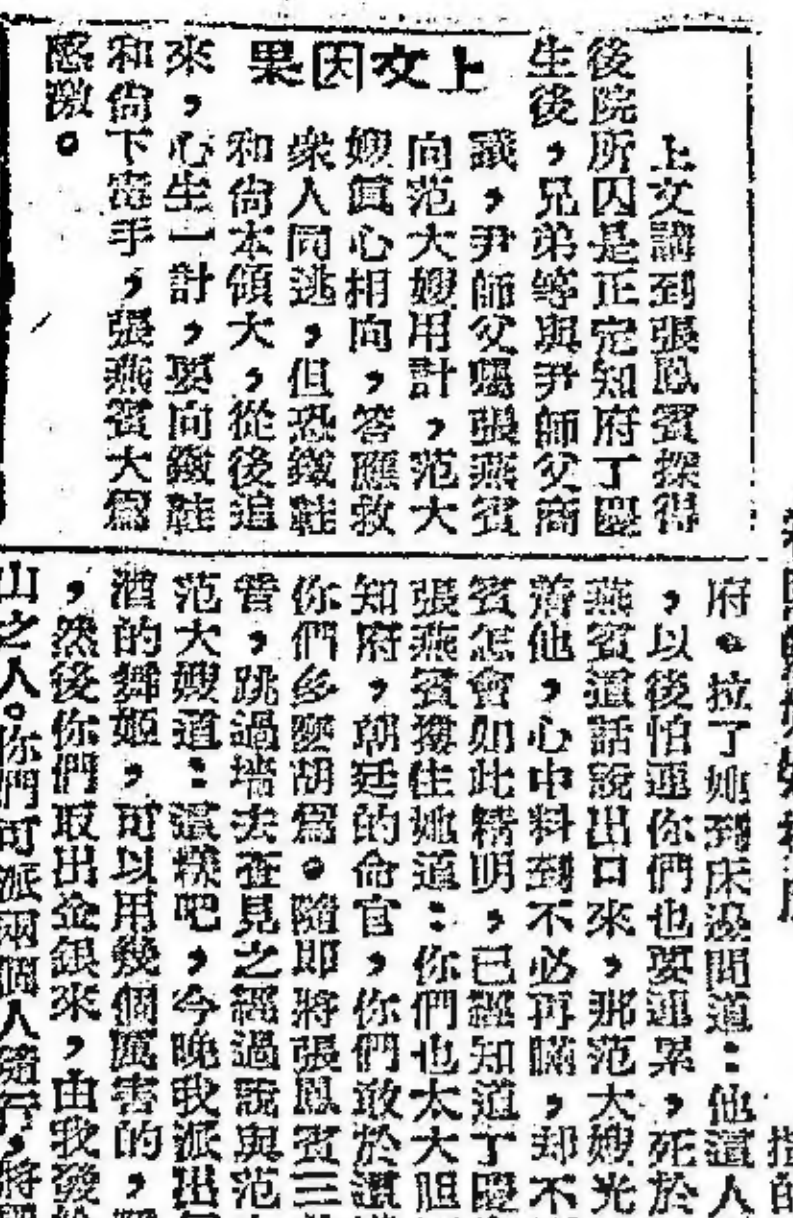 上文因果
上文講到張鳳賓探得
後院所囚是正定知府丁慶
生後，兄弟等與尹師父商
議，尹師父囑張燕賓
向范大嫂用計，范大
嫂眞心相向，答應救
衆人同逃，但恐鐵鞋
和尙本領大，從後追
來，心生一計，要向鐵鞋
和尙下毒手，張燕賓大爲
感激。
府。拉了她到床邊問道：他這人
，以後怕連你們也要連累，死於
燕賓道話說出口來，那范大嫂光
着他，心中料到不必再瞞，却不
賓怎會如此精明，已經知道丁慶
張燕賓擁住她道：你們也太大胆
知府，朝廷的命官，你們敢於這
你們多麼胡爲。隨即將張鳳賓三
晉，跳過墻去查見之經過說與范
范大嫂道：這樣吧，今晚我派出
酒的舞姬，可以用幾個厲害的，
，然後你們取出金銀來，由我發
山之人。你們可派兩個人隨行，將